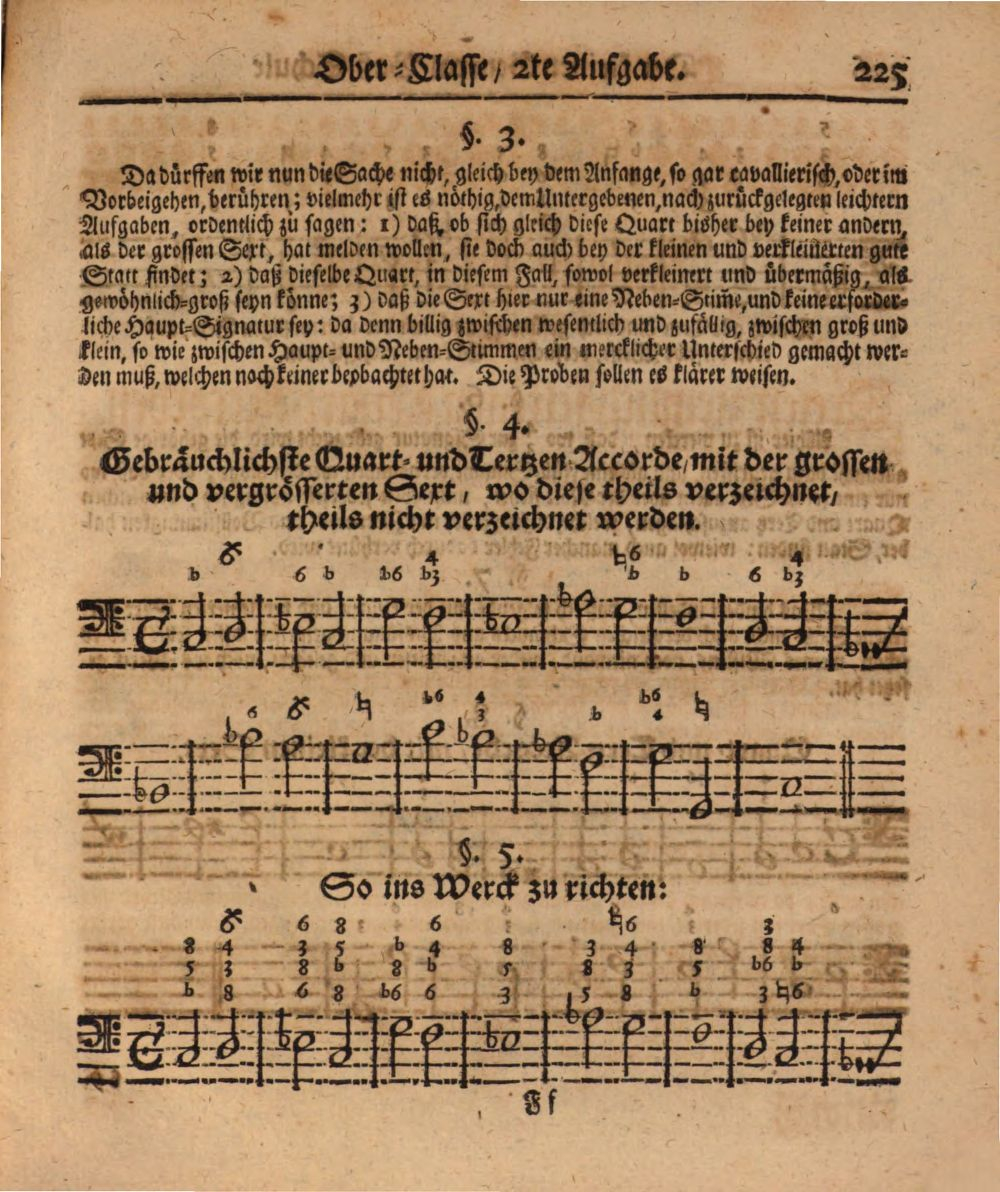 Ober-Classe, 2te Aufgabe. 225
§. 3.
Da dürffen wir nun die Sache nicht, gleich bey dem Anfange, so gar cavallierisch, oder im
Vorbeigehen, berühren; vielmehr ist es nöthig, dem Untergebenen, nach zurückgelegten leichtern
Aufgaben, ordentlich zu sagen: 1) daß, ob sich gleich diese Quart bisher bey keiner andern,
als der grossen Sext, hat melden wollen, sie doch auch bey der kleinen und verkleinerten gute
Statt findet; 2) daß dieselbe Quart, in diesem Fall, sowol verkleinert und übermäßig, als
gewöhnlich-groß seyn könne; 3) daß die Sext hier nur eine Neben-Stim̃e, und keine erforder-
liche Haupt-Signatur sey: da denn billig zwischen wesentlich und zufällig, zwischen groß und
klein, so wie zwischen Haupt- und Neben-Stimmen ein mercklicher Unterschied gemacht wer-
den muß, welchen noch keiner beobachtet hat. Die Proben sollen es klärer weisen.
§. 4.
Gebräuchlichste Quart- und Tertzen-Accorde, mit der grossen
und vergrösserten Sext, wo diese theils verzeichnet,
theils nicht verzeichnet werden.
6 4 ♮6 4
b 6 b b6 b3 b b 6 b3
6 6 ♮ b6 4 b6 ♮
3 b 4
§. 5.
So ins Werck zu richten:
6 6 8 6 ♮6 3
8 4 3 5 b 4 8 3 4 8 8 4
5 3 8 b 8 b 5 8 3 5 b6 b
b 8 6 8 b6 6 3 5 8 b 3 ♮6
Ff